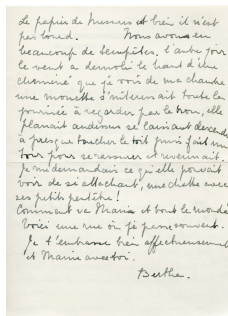 Le papier de Mesnus et bien il n'est
pas lourd. Nous avons eu
beaucoup de tempêtes, l'autre jour
le vent a démoli le haut d'une
cheminée que je vois de ma chambre
une mouette s'interessait toute la
journée à regarder par le trou, elle
planait audessus se laissant descendre
à presque toucher le toit puis fait un
tour pour se rassurer et revenait.
Je me demandais ce qu'elle pouvait
voir de si attachant, une chatte avec
ses petits peutêtre!
Comment va Maria et tout le monde
Voici une rue où je passe souvent.
Je t'embrasse bien affectueusement
et Maria avec toi.
Berthe.